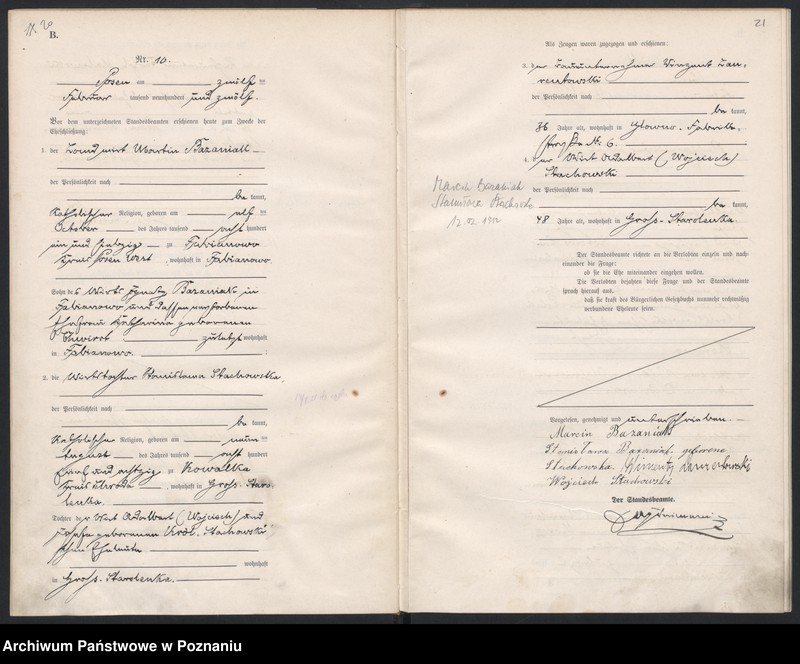 B.
Nr. 10.
Posen am zwölf ten
Februar tausend neunhundert und zwölf.
Vor dem unterzeichneten Standesbeamten erschienen heute zum Zwecke der
Eheschließung:
1. der Landwirt Martin Bazaniak
der Persönlichkeit nach
be kannt,
katholischer Religion, geboren am elf ten
October des Jahres tausend acht hundert
ein und zu Fabianowo
Kreis Posen West, wohnhaft in Fabianowo
Sohn des Wirts Ignatz Bazaniak in
Fabianowo und dessen verstorbenen
Ehefrau Katharina geborenen
zuletzt wohnhaft
in Fabianowo.
2. die Wirtstochter Stanislawa Stachowska,
der Persönlichkeit nach
be kannt,
katholischer Religion, geboren am neun ten
August des Jahres tausend acht hundert
und achtzig zu Kowalka
Kreis Schroda, wohnhaft in Gross-Staro-
lenka.
Tochter der Wirt Adalbert (Wojciech) und
geborenen Król-Stachowski
schen Eheleute
wohnhaft
in Gross-Starolenka.
21
Als Zeugen waren zugezogen und erschienen:
3. der Bauunternehmer Vinzent Law-
rentowski
der Persönlichkeit nach
be kannt,
36 Jahre alt, wohnhaft in Glowno, Fabrik-
straße No 6.
4. der Wirt Adalbert (Wojciech)
Stachowski
der Persönlichkeit nach
be kannt,
48 Jahre alt, wohnhaft in Gross-Starolenka.
Marcin Bazaniak
Stanisława Stachowska
12.02 1912
Der Standesbeamte richtete an die Verlobten einzeln und nach-
einander die Frage:
ob sie die Ehe miteinander eingehen wollen.
Die Verlobten bejahten diese Frage und der Standesbeamte
sprach hierauf aus,
daß sie kraft des Bürgerlichen Gesetzbuchs nunmehr rechtmäßig
verbundene Eheleute seien.
Vorgelesen, genehmigt und unterschrieben.
Marcin Bazaniak
Stanisława Bazaniak geborene
Stachowska Wincenty Lawrentowski
Wojciech Stachowski
Der Standesbeamte.
Archiwum Państwowe w Poznaniu